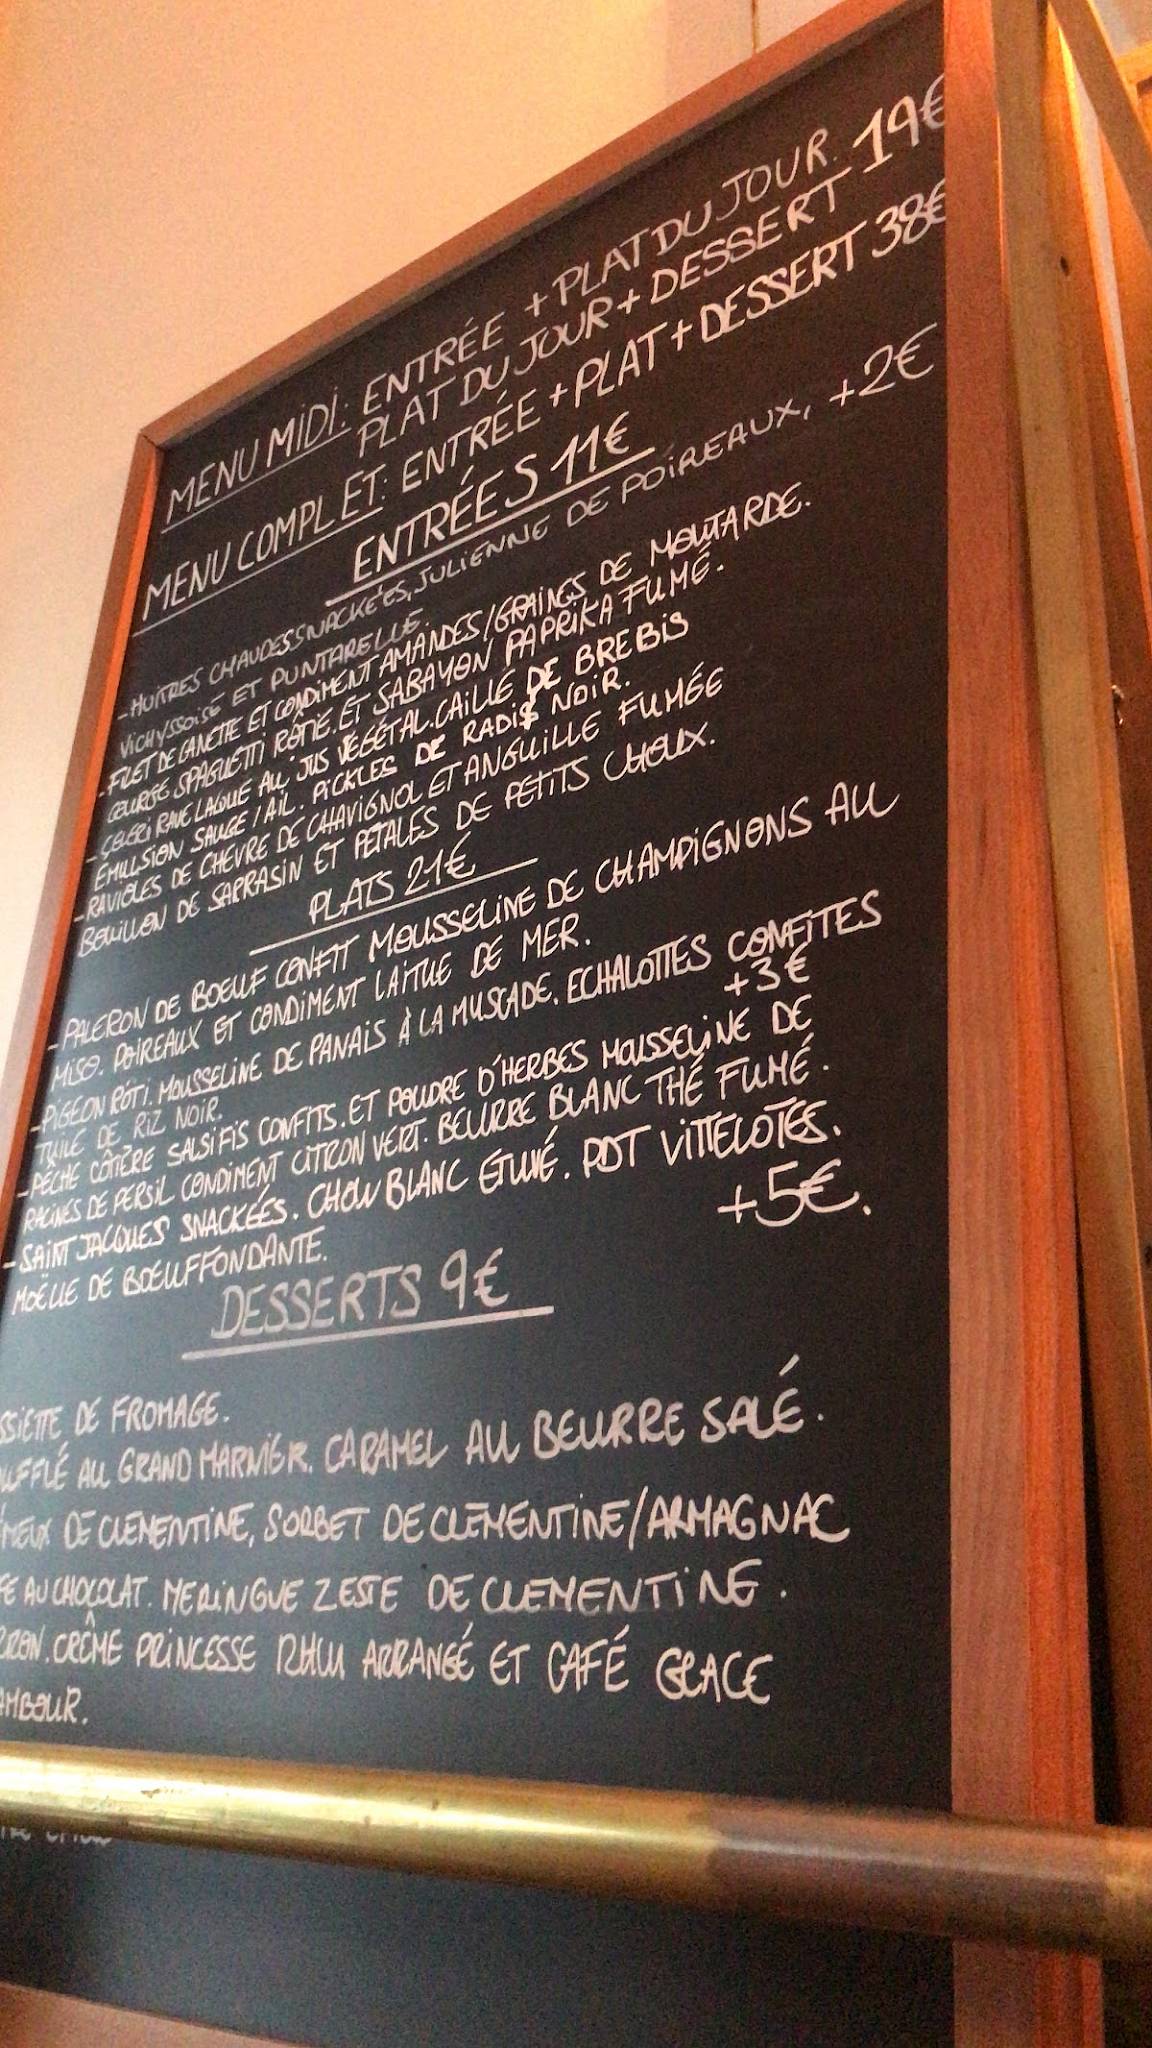 MENU MIDI: ENTRÉE + PLAT DU JOUR. 19€
PLAT DU JOUR + DESSERT
MENU COMPLET: ENTRÉE + PLAT + DESSERT 38€
ENTRÉES 11€
- HUITRES CHAUDES SNACKÉES, JULIENNE DE POIREAUX, +2€
VICHYSSOISE ET PUNTARELLE.
- FILET DE CANETTE ET CONDIMENT AMANDES/GRAINES DE MOUTARDE.
COURGE SPAGUETTI RÔTIE. ET SABAYON PAPRIKA FUMÉ.
- CELERI RAVE LAQUE AU JUS VÉGÉTAL. CAILLÉ DE BREBIS
EMULSION SAUGE / AIL. PICKLES DE RADIS NOIR.
- RAVIOLES DE CHEVRE DE CHAVIGNOL ET ANGUILLE FUMÉE
BOUILLON DE SARRASIN ET PETALES DE PETITS CHOUX.
PLATS 21€
- PALERON DE BOEUF CONFIT MOUSSELINE DE CHAMPIGNONS AU
MISO. POIREAUX ET CONDIMENT LAITUE DE MER.
- PIGEON RÔTI. MOUSSELINE DE PANAIS À LA MUSCADE. ECHALOTTES CONFITES
TUILE DE RIZ NOIR. +3€
- PÊCHE CÔTIÈRE SALSIFIS CONFITS. ET POUDRE D'HERBES MOUSSELINE DE
RACINES DE PERSIL CONDIMENT CITRON VERT. BEURRE BLANC THÉ FUMÉ.
- SAINT JACQUES SNACKÉES. CHOU BLANC ETUVÉ. PDT VITTELOTES.
MOËLLE DE BOEUF FONDANTE. +5€.
DESSERTS 9€
SSIETTE DE FROMAGE.
UFFLÉ AU GRAND MARNIER. CARAMEL AU BEURRE SALÉ.
MEUX DE CLEMENTINE, SORBET DE CLEMENTINE/ARMAGNAC
AU CHOCOLAT. MERINGUE ZESTE DE CLEMENTINE.
CRÊME PRINCESSE RHUM ARRANGÉ ET CAFÉ GLACE
AMBOUR.